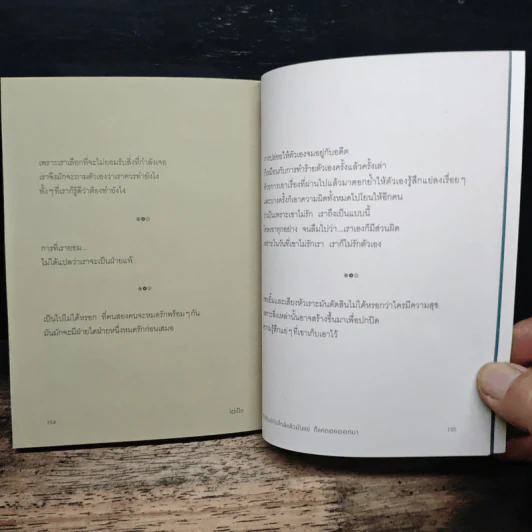 เพราะเราเลือกที่จะไม่ยอมรับสิ่งที่กำลังเจอ
เราจึงมักจะถามตัวเองว่าเราควรทำยังไง
ทั้งๆ ที่เราก็รู้ดีว่าต้องทำยังไง
การที่เรายอม...
ไม่ได้แปลว่าเราจะเป็นฝ่ายแพ้
เป็นไปไม่ได้หรอก ที่คนสองคนจะหมดรักพร้อมๆ กัน
มันมักจะมีฝ่ายใดฝ่ายหนึ่งหมดรักก่อนเสมอ
154
การปล่อยให้ตัวเองจมอยู่กับอดีต
ก็เหมือนกับการทำร้ายตัวเองครั้งแล้วครั้งเล่า
ด้วยการเอาเรื่องที่ผ่านไปแล้วมาตอกย้ำให้ตัวเองรู้สึกแย่ลงเรื่อยๆ
และบางครั้งก็เอาความผิดทั้งหมดไปโยนให้อีกคน
ว่าเป็นเพราะเขาไม่รัก เราถึงเป็นแบบนี้
โทษเขาทุกอย่าง จนลืมไปว่า...เราเองก็มีส่วนผิด
เพราะในวันที่เขาไม่รักเรา เราก็ไม่รักตัวเอง
รอยยิ้มและเสียงหัวเราะมันตัดสินไม่ได้หรอกว่าใครมีความสุข
เพราะสิ่งเหล่านั้นอาจสร้างขึ้นมาเพื่อปกปิด
ความรู้สึกแย่ๆ ที่เขาเก็บเอาไว้
ก็แค่ถอยออกมา
155